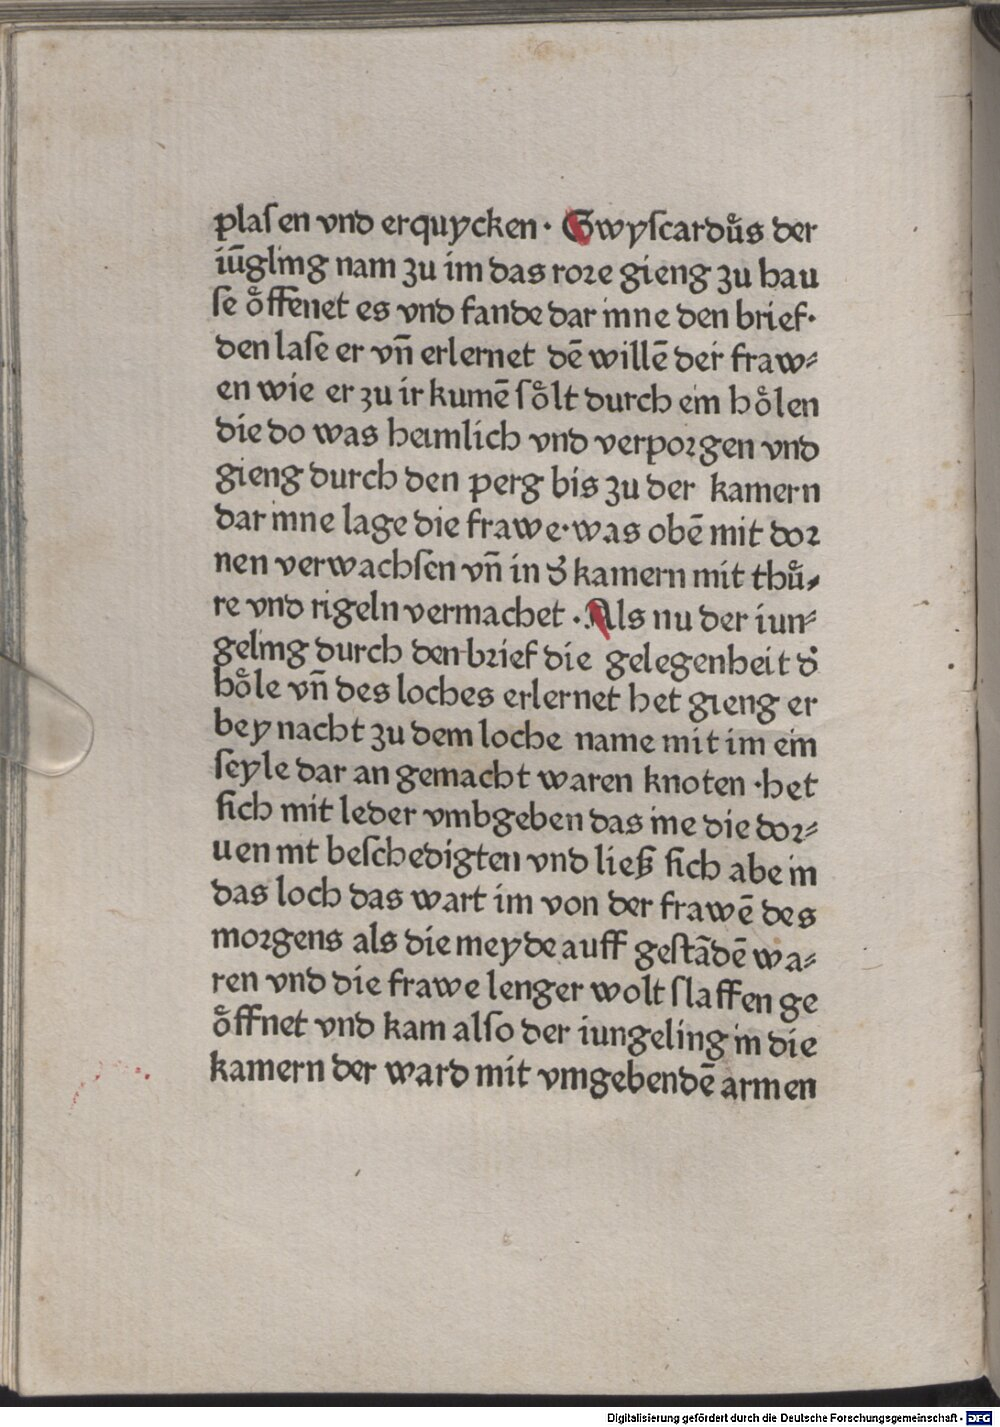 plaſen vnd erquycken· Gwyſcardůs der
iūgling nam zu im das roꝛe gieng zu hau
ſe oͤffenet es vnd fande dar inne den brief·
den laſe er vn̄ erlernet dē willē der fraw⸗
en wie er zu ir kumē ſoͤlt durch ein hoͤlen
die do was heimlich vnd verpoꝛgen vnd
gieng durch den perg bis zu der kamern
dar inne lage die frawe·was obē mit doꝛ
nen verwachſen vn̄ in d̕ kamern mit thuͤ⸗
re vnd rigeln vermachet ·Als nu der iun⸗
geling durch den brief die gelegenheit d̕
hoͤle vn̄ des loches erlernet het gieng er
bey nacht zu dem loche name mit im ein
ſeyle dar an gemacht waren knoten ·het
ſich mit leder vmbgeben das ine die doꝛ⸗
uen nit beſchedigten vnd ließ ſich abe in
das loch das wart im von der frawē des
moꝛgens als die meyde auff geſtādē wa⸗
ren vnd die frawe lenger wolt ſlaffen ge
oͤffnet vnd kam alſo der iungeling in die
kamern der ward mit vmgebendē armen
Digitalisierung gefördert durch die Deutsche Forschungsgemeinschaft - DFG